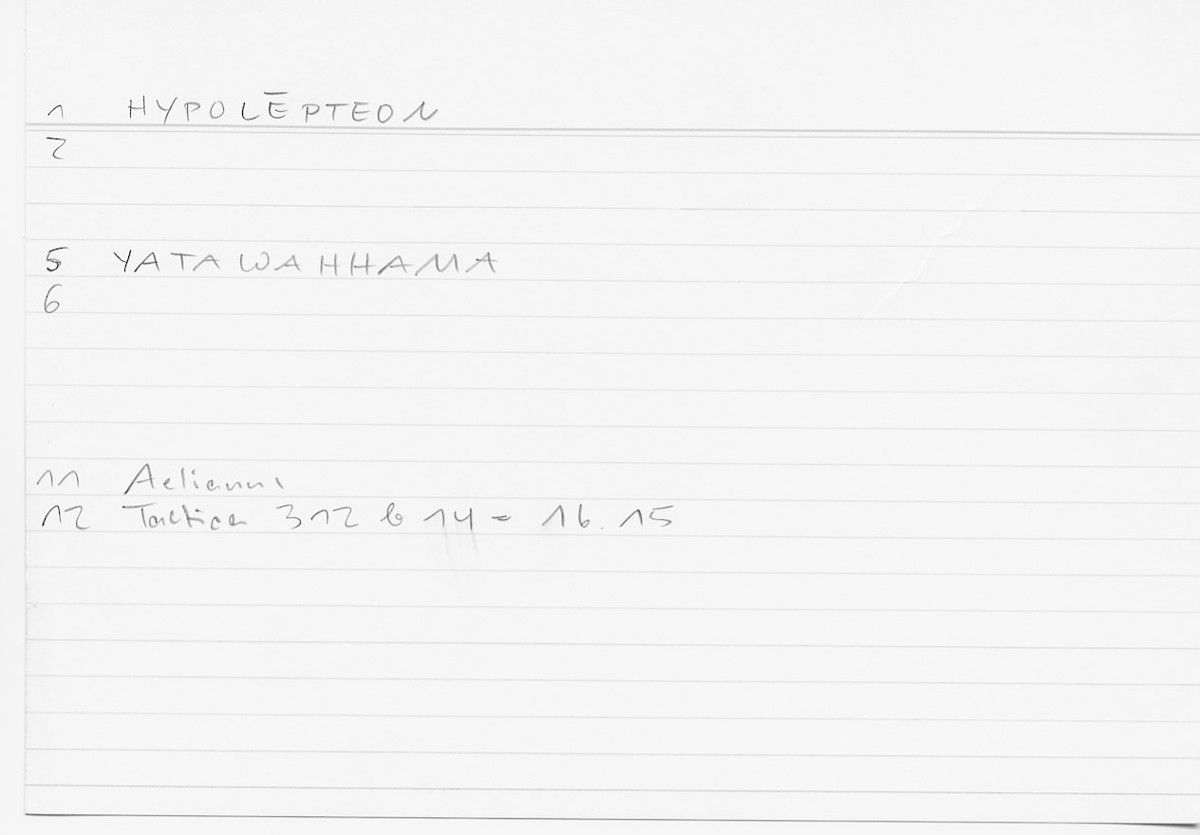 1 HYPOLĒPTEON
2
5 YATAWAHHAMA
6
11 Aelianus
12 Tactica 312 b 14 = 16.15